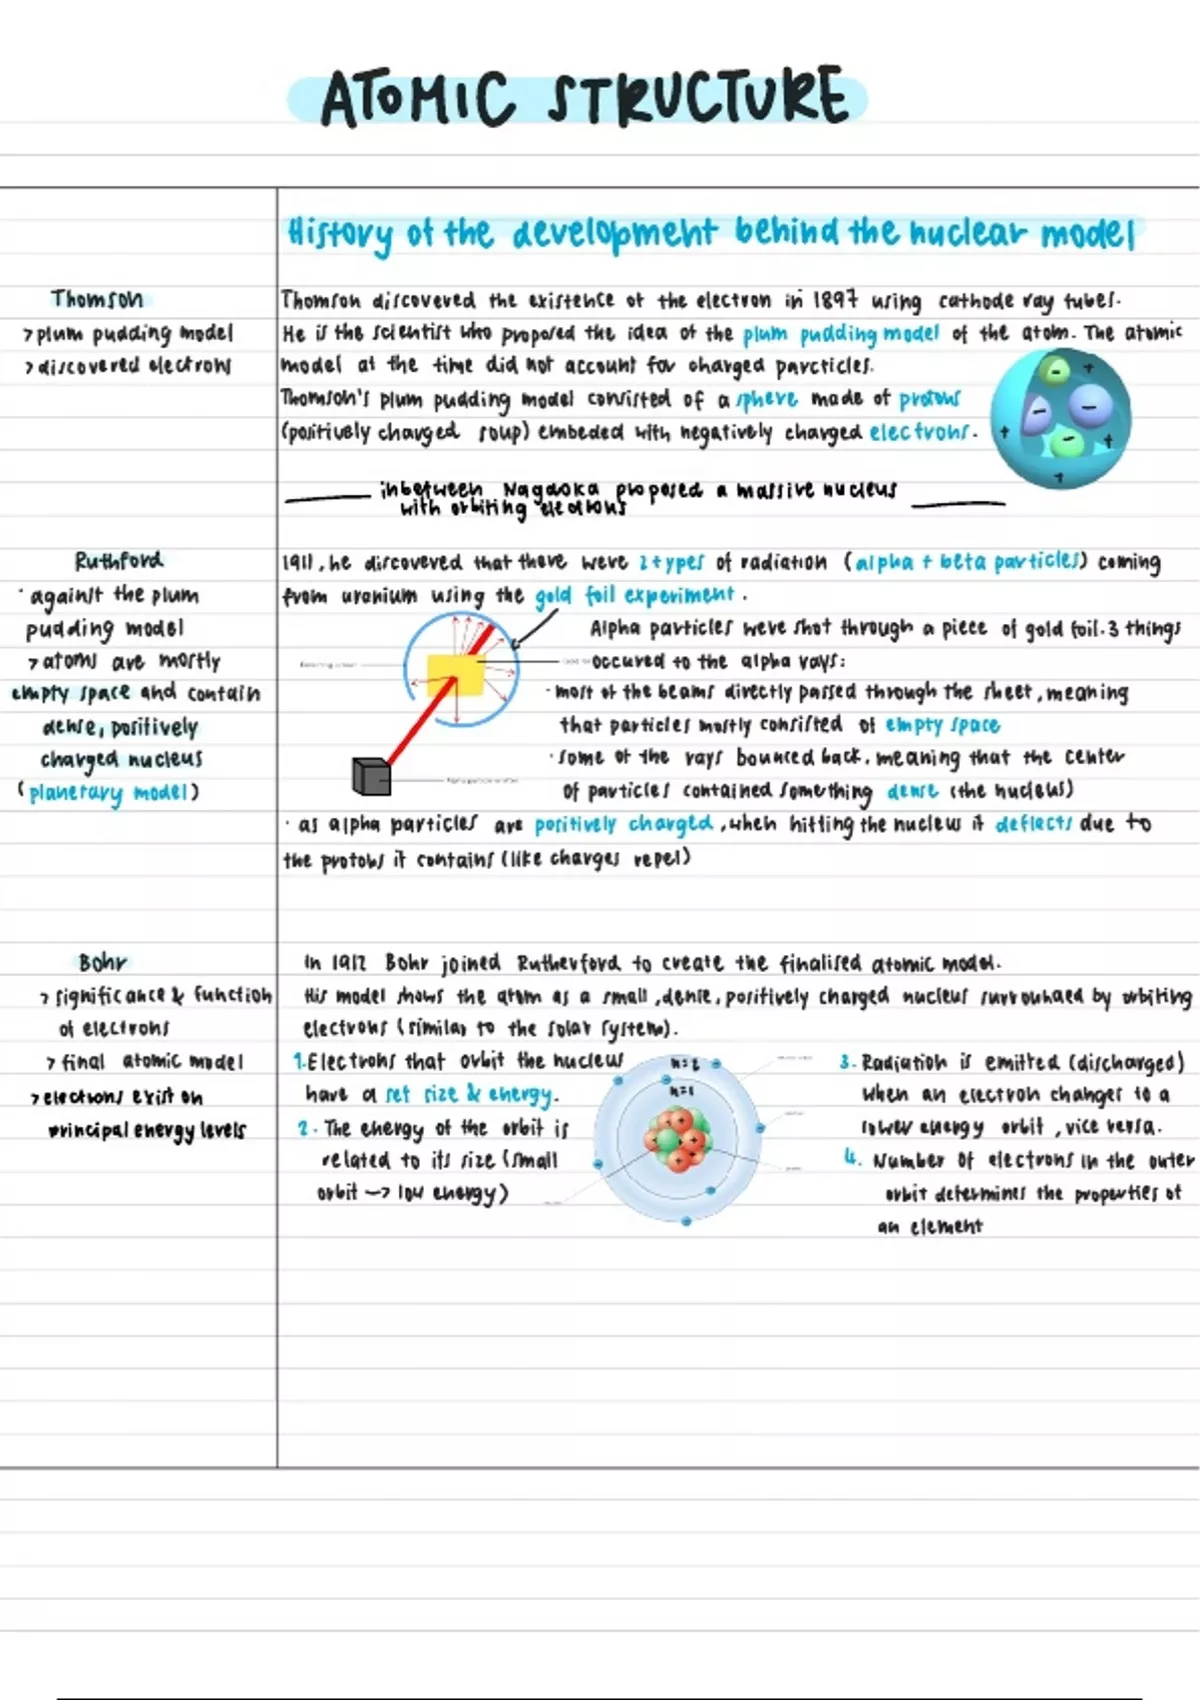 ATOMIC STRUCTURE
History of the development behind the nuclear model
Thomson
> plum pudding model
> discovered electrons
Thomson discovered the existence of the electron in 1897 using cathode ray tubes.
He is the scientist who proposed the idea of the plum pudding model of the atom. The atomic
model at the time did not account for charged parcticles.
Thomson's plum pudding model consisted of a sphere made of protons
(positively charged soup) embeded with negatively charged electrons.
inbetween Nagaoka proposed a massive nucleus
with orbiting electrons
Ruthford
· against the plum
pudding model
> atoms are mostly
empty space and contain
dense, positively
charged nucleus
(planetary model)
1911, he discovered that there were 2 types of radiation (alpha + beta particles) coming
from uranium using the gold foil experiment.
Alpha particles were shot through a piece of gold foil. 3 things
occured to the alpha rays:
· most of the beams directly passed through the sheet, meaning
that particles mostly consisted of empty space
· some of the rays bounced back, meaning that the center
of particles contained something dense (the nucleus)
· as alpha particles are positively charged, when hitting the nucleus it deflects due to
the protons it contains (like charges repel)
Bohr
> significance & function
of electrons
> final atomic model
> electrons exist on
principal energy levels
In 1912 Bohr joined Rutherford to create the finalised atomic model.
His model shows the atom as a small, dense, positively charged nucleus surrounded by orbiting
electrons (similar to the solar system).
1. Electrons that orbit the nucleus
have a set size & energy.
2. The energy of the orbit is
related to its size (small
orbit -> low energy)
n=2
n=1
3. Radiation is emitted (discharged)
when an electron changes to a
lower energy orbit, vice versa.
4. Number of electrons in the outer
orbit determines the properties of
an element